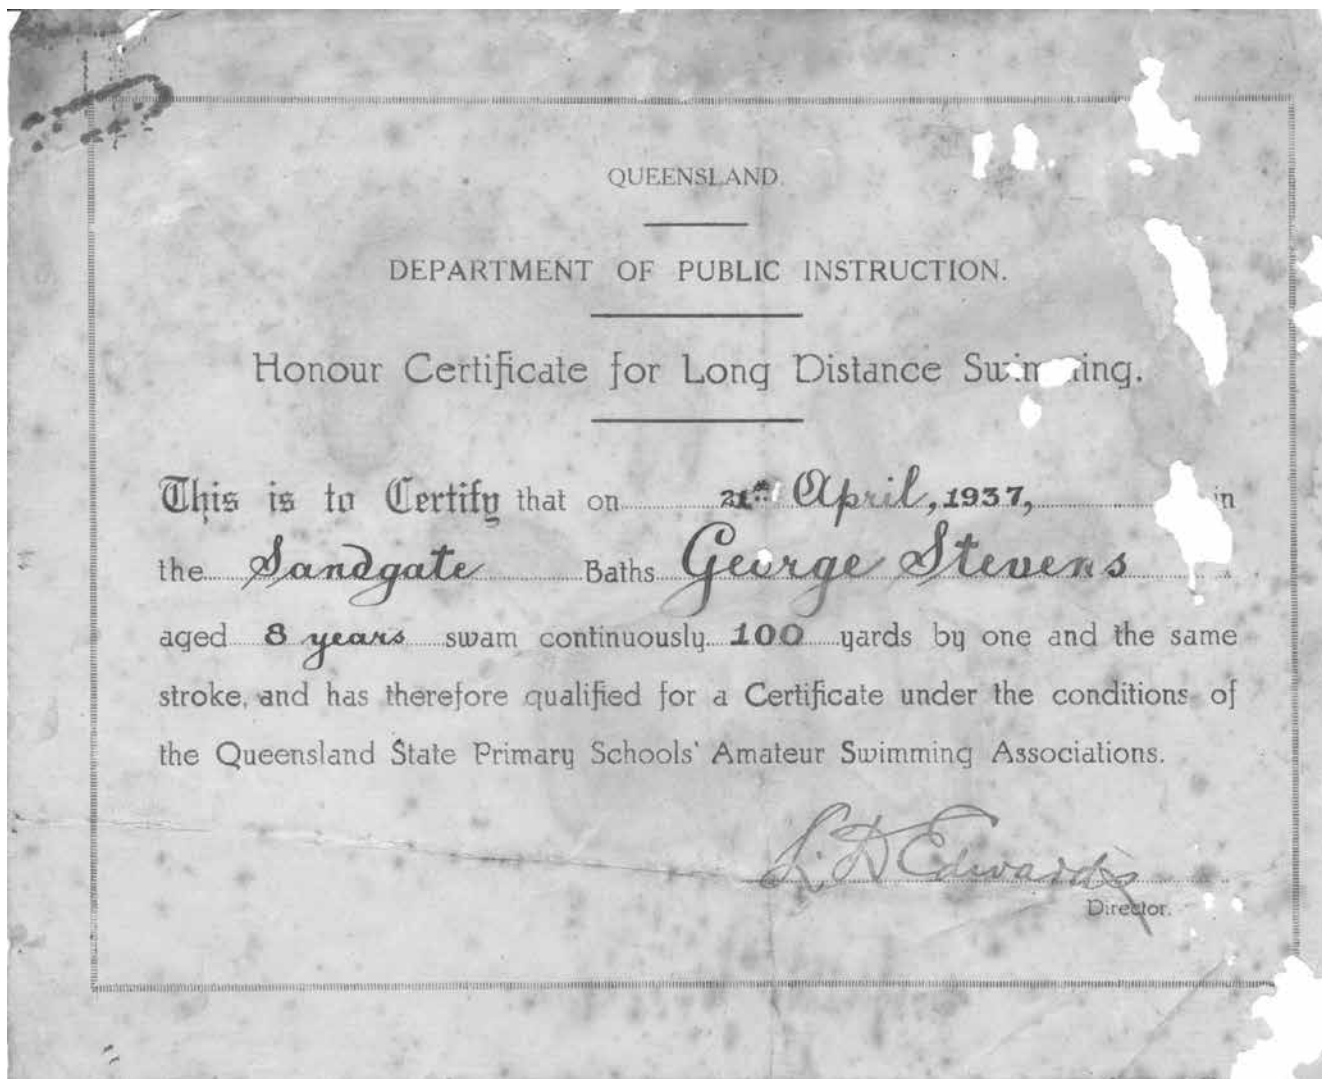 QUEENSLAND.
DEPARTMENT OF PUBLIC INSTRUCTION.
Honour Certificate for Long Distance Swimming.
This is to Certify that on 21st April, 1937, in
the Sandgate Baths George Stevens
aged 8 years swam continuously 100 yards by one and the same
stroke, and has therefore qualified for a Certificate under the conditions of
the Queensland State Primary Schools' Amateur Swimming Associations.
L. D Edwards
Director.